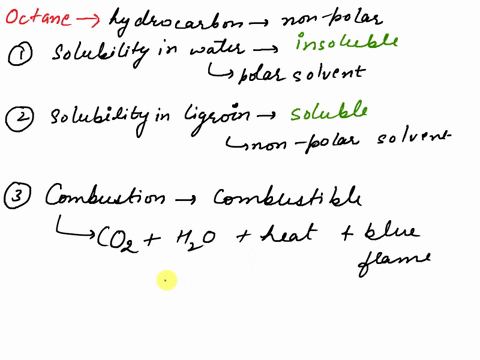 Octane → hydrocarbon → non-polar
① Solubility in water → insoluble
↳ polar solvent
② Solubility in ligroin → soluble
↳ non-polar solvent
③ Combustion → Combustible
↳ CO₂ + H₂O + heat + blue
flame